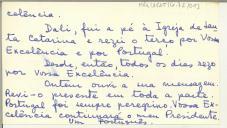 celência.
Dali, fui a pé à Igreja de San
ta Catarina e rezei o terço por Vossa
Excelência e por Portugal!
Desde, então, todos os dias rezo
por Vossa Excelência.
Ontem ouvi a sua mensagem.
Revi-o presente em toda a parte.
Portugal foi sempre peregrino. Vossa Ex-
celência continuará o meu Presidente.
Um Português.